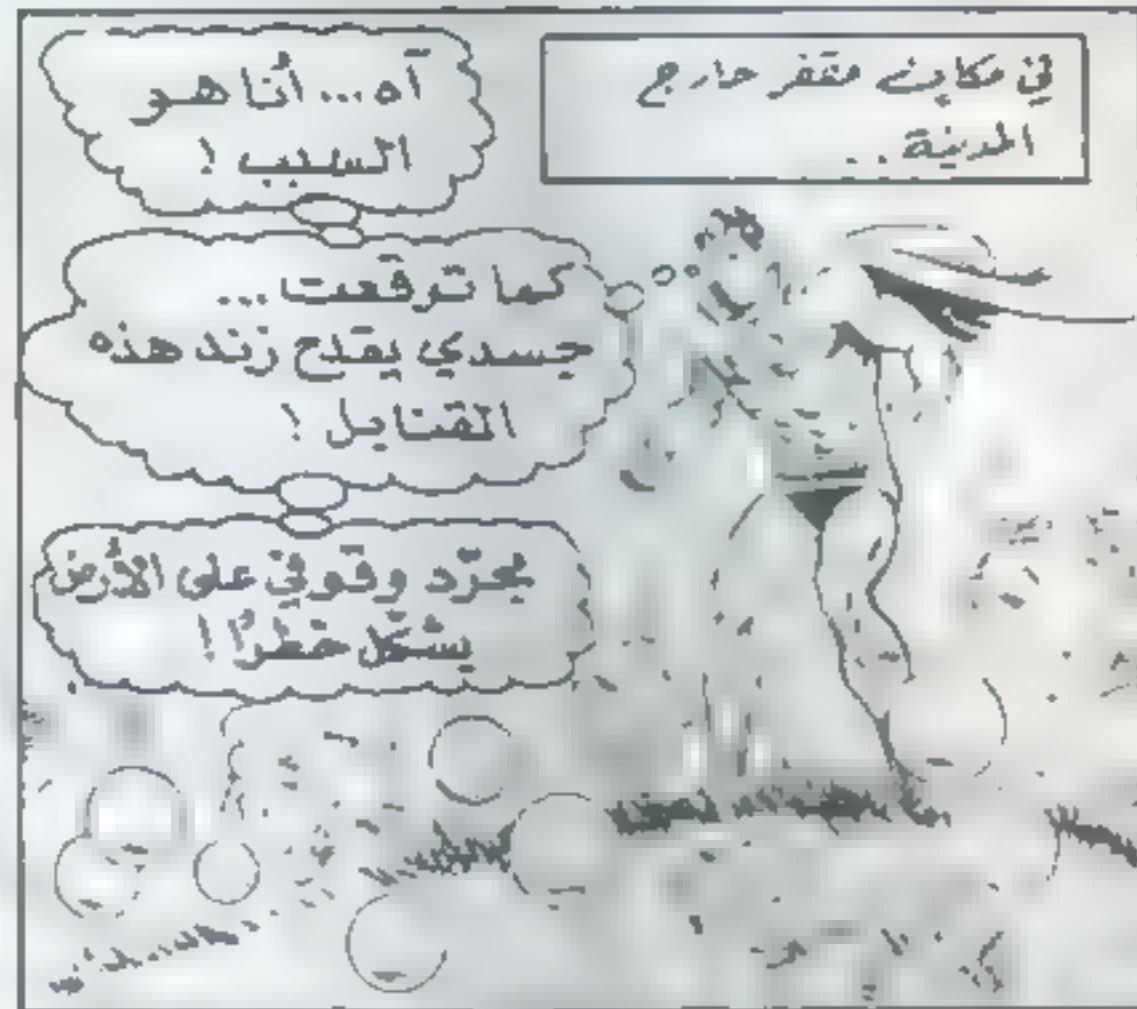 في مكان مقفر خارج
المدينة..
آه... أنا هو
السبب !
كما توقعت...
جسدي يقدح زند هذه
القنابل !
مجرّد وقوفي على الأرض
يشكّل خطرًا !